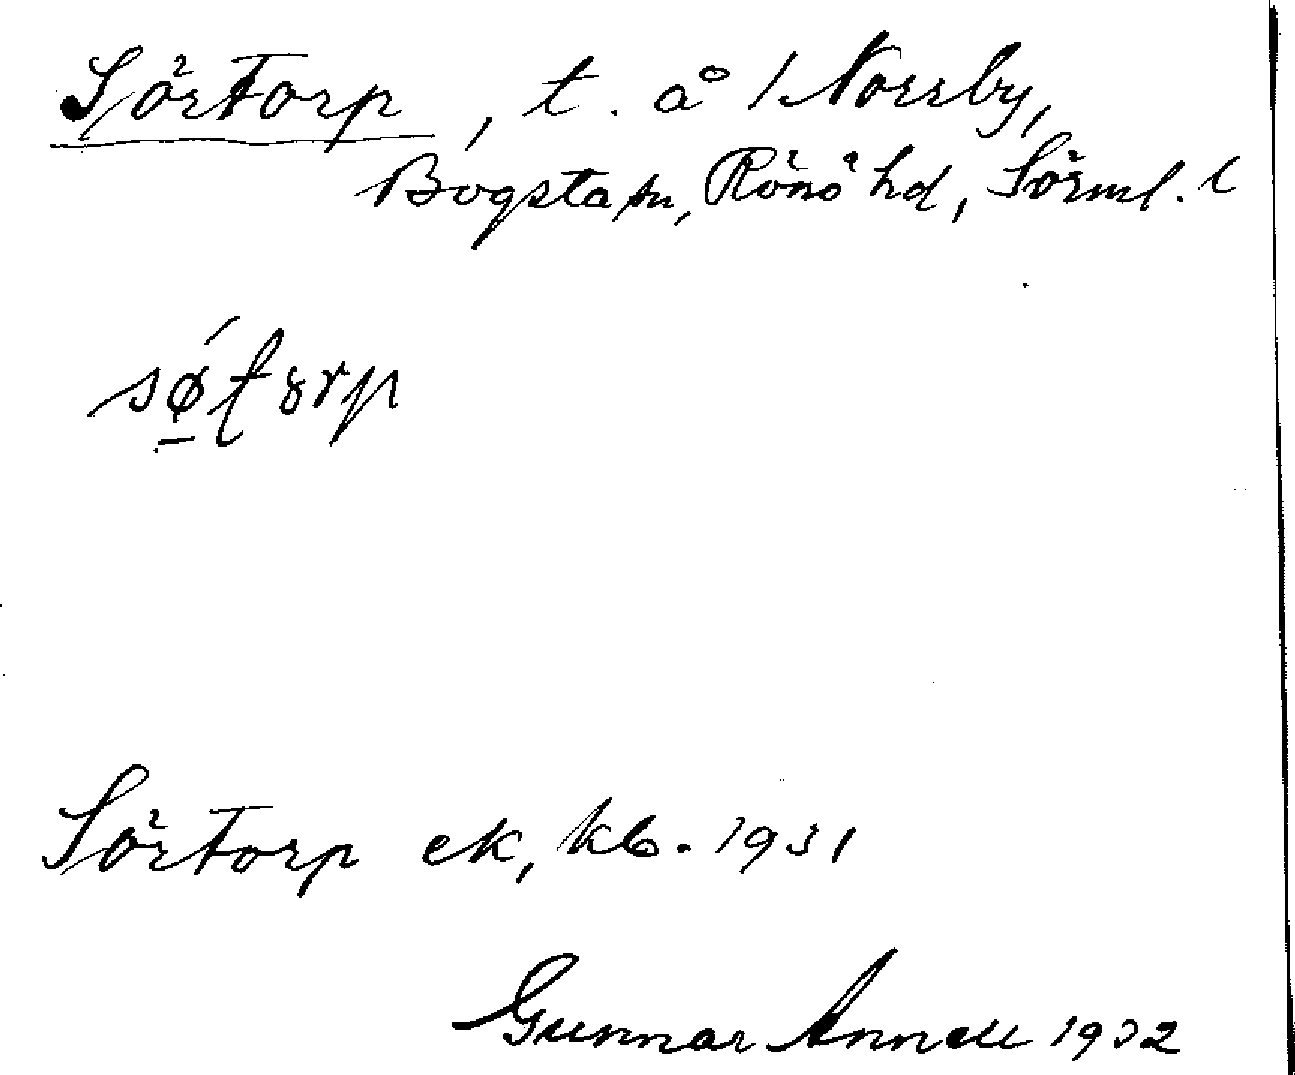 Sörtorp, t. å 1 Norrby,
Bogsta sn, Rönö hd, Sörml. l
sǿ̱tȣrp
Sörtorp ek, kb. 1931
Gunnar Annell 1932